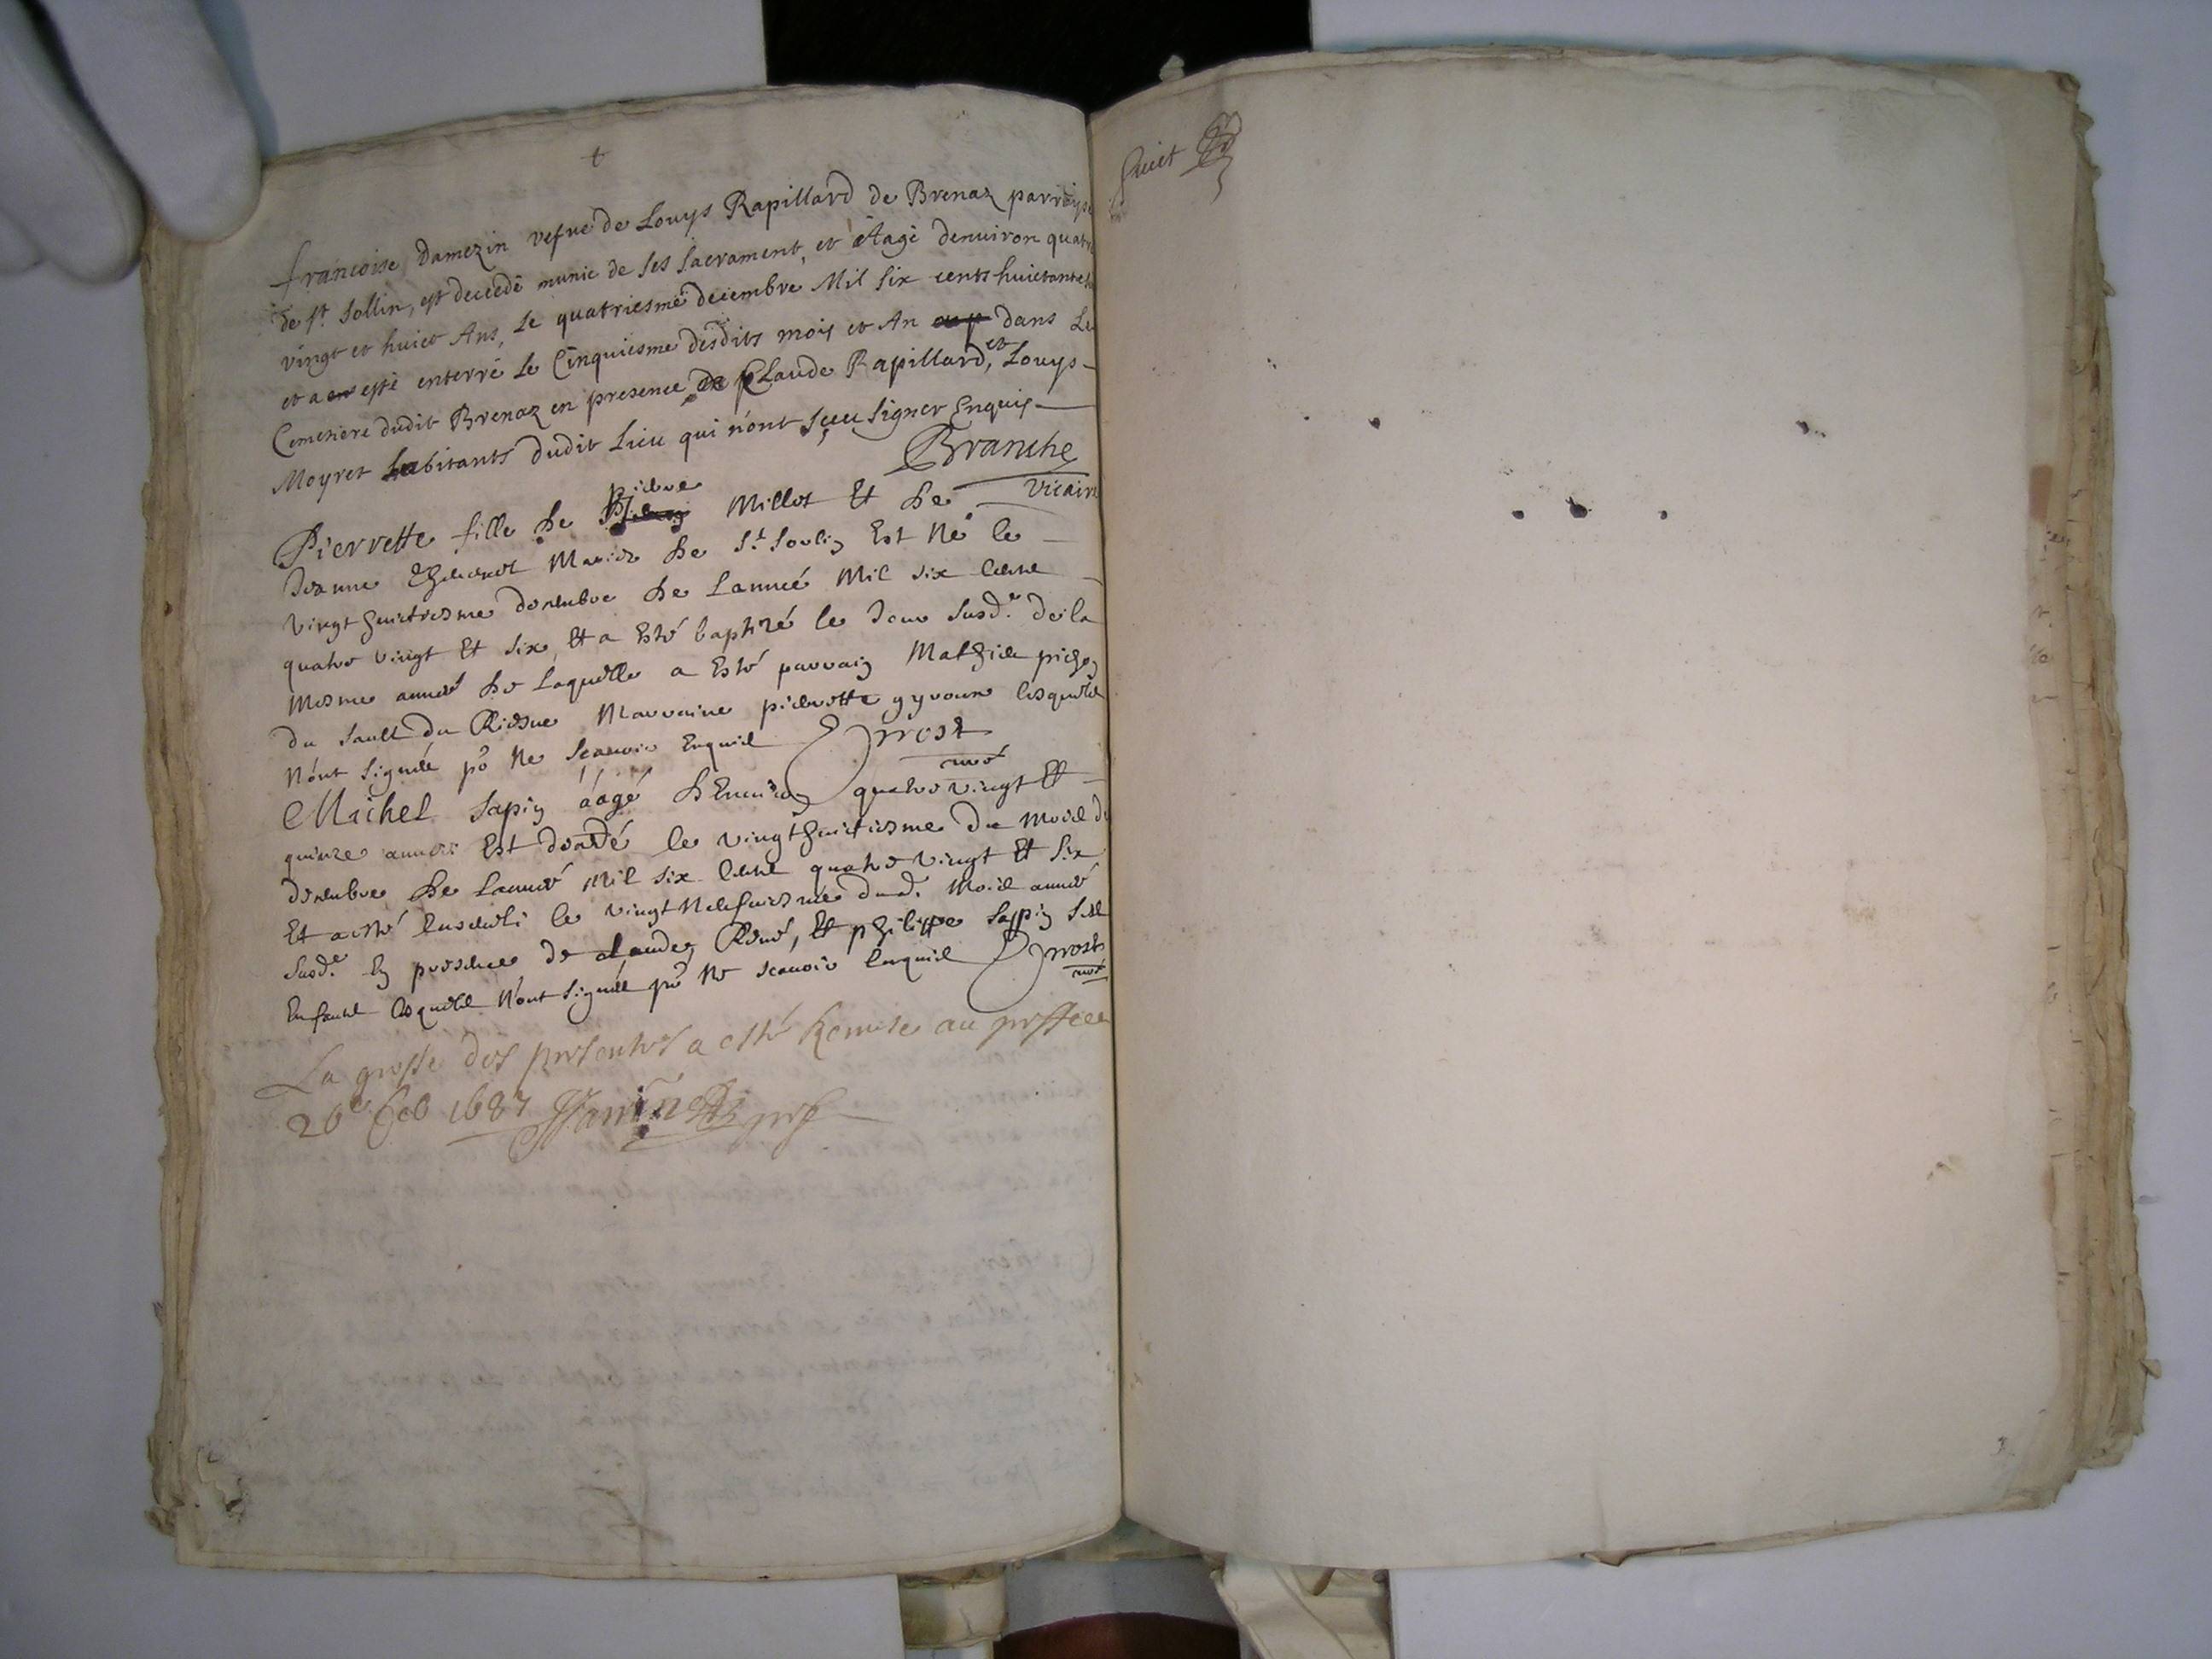 +
francoise Damezin vefue de Louys Rapillard de Brenaz parroisse
de st. Sollin, est decedé munie de ses sacrament, et étagé denuiron quatre
vingt et huict Ans, Le quatriesme decembre Mil six cents huictante
et a esté enterré Le Cinquiesme desdits mois et An dans Le
Cemetiere dudit Brenaz en presence de Claude Rapillard, et Louys
Moyret habitants dudit Lieu qui n'ont sçeu signer Enquis
Branche
vicaire
Pierrette fille de Pierre Millot Et de
Jeanne Mariez de St. Soulin Est Né le
vingt huictiesme decembre de Lanneé Mil six cent
quatre vingt Et six, Et a Esté baptizé le Jour susd.e de la
Mesme anneé de Laquelle a Esté parrain Mathieu pichon
du sault du Rosne Marraine pierrette lesquels
N'ont signéz po Ne scauoir Enquis Prost
curé
Michel Sapin áagé dEnuiron quatre vingt Et
quinze anneés Est decedé le vingthuictiesme du Mois de
decembre de Lanneé Mil six cent quatre vingt Et six
Et a esté Enseueli le vingt Neufuiesme dud. Mois anneé
susd.e En presence de claude, René, Et philippe Sappin ses
Enfants lesquels N'ont signéz po Ne scauoir Enquis Prost
curé
La grosse des presentes a esté Remise au greffe ce
20e feb 1687